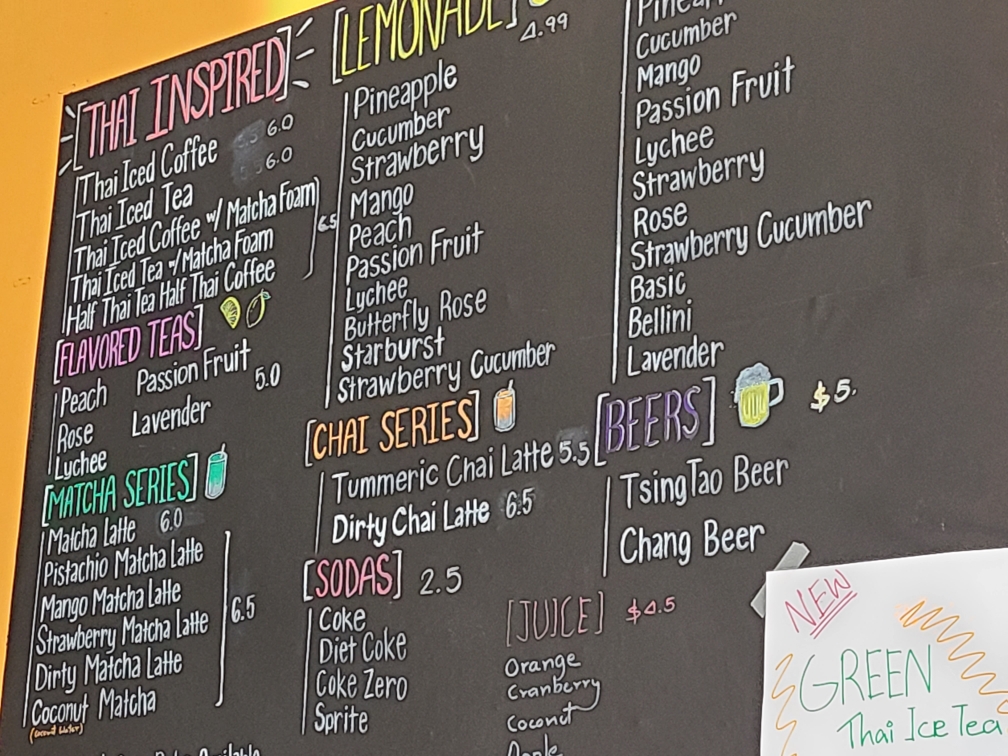 [THAI INSPIRED]
Thai Iced Coffee 6.0
Thai Iced Tea 6.0
Thai Iced Coffee w/ Matcha Foam
Thai Iced Tea w/ Matcha Foam
Half Thai Tea Half Thai Coffee
6.5
[FLAVORED TEAS]
Peach Passion Fruit
5.0
Rose Lavender
Lychee
[MATCHA SERIES]
Matcha Latte 6.0
Pistachio Matcha Latte
Mango Matcha Latte
Strawberry Matcha Latte
Dirty Matcha Latte
Coconut Matcha
(Coconut Water)
6.5
Available
[LEMONADE]
4.99
Pineapple
Cucumber
Strawberry
Mango
Peach
Passion Fruit
Lychee
Butterfly Rose
Starburst
Strawberry Cucumber
[CHAI SERIES]
Tummeric Chai Latte 5.5
Dirty Chai Latte 6.5
[SODAS] 2.5
Coke
Diet Coke
Coke Zero
Sprite
Cucumber
Mango
Passion Fruit
Lychee
Strawberry
Rose
Strawberry Cucumber
Basic
Bellini
Lavender
[BEERS] $5.
TsingTao Beer
Chang Beer
[JUICE] $4.5
Orange
Cranberry
Coconut
Apple
NEW
GREEN
Thai Ice Tea